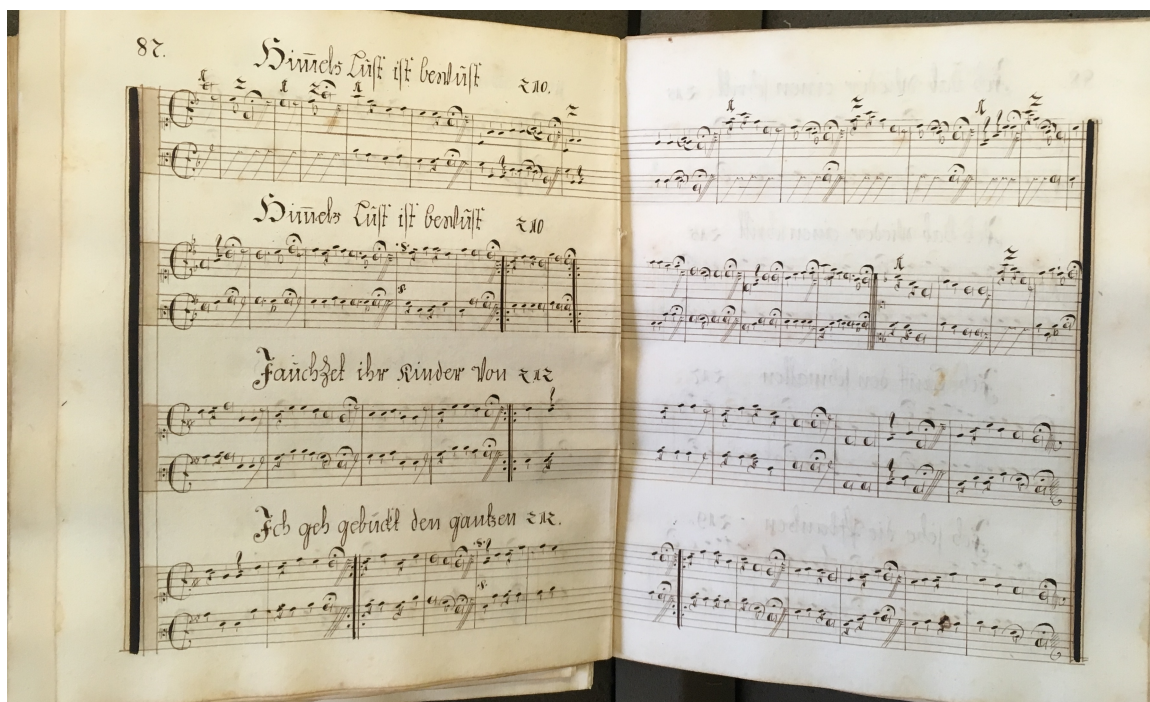 87.
Him̄els Lust ist bewūst 210.
Him̄els Lūst ist bewūst 210
Jauchzet ihr Kinder Von 212
Ich geh gebückt den gantzen 212.